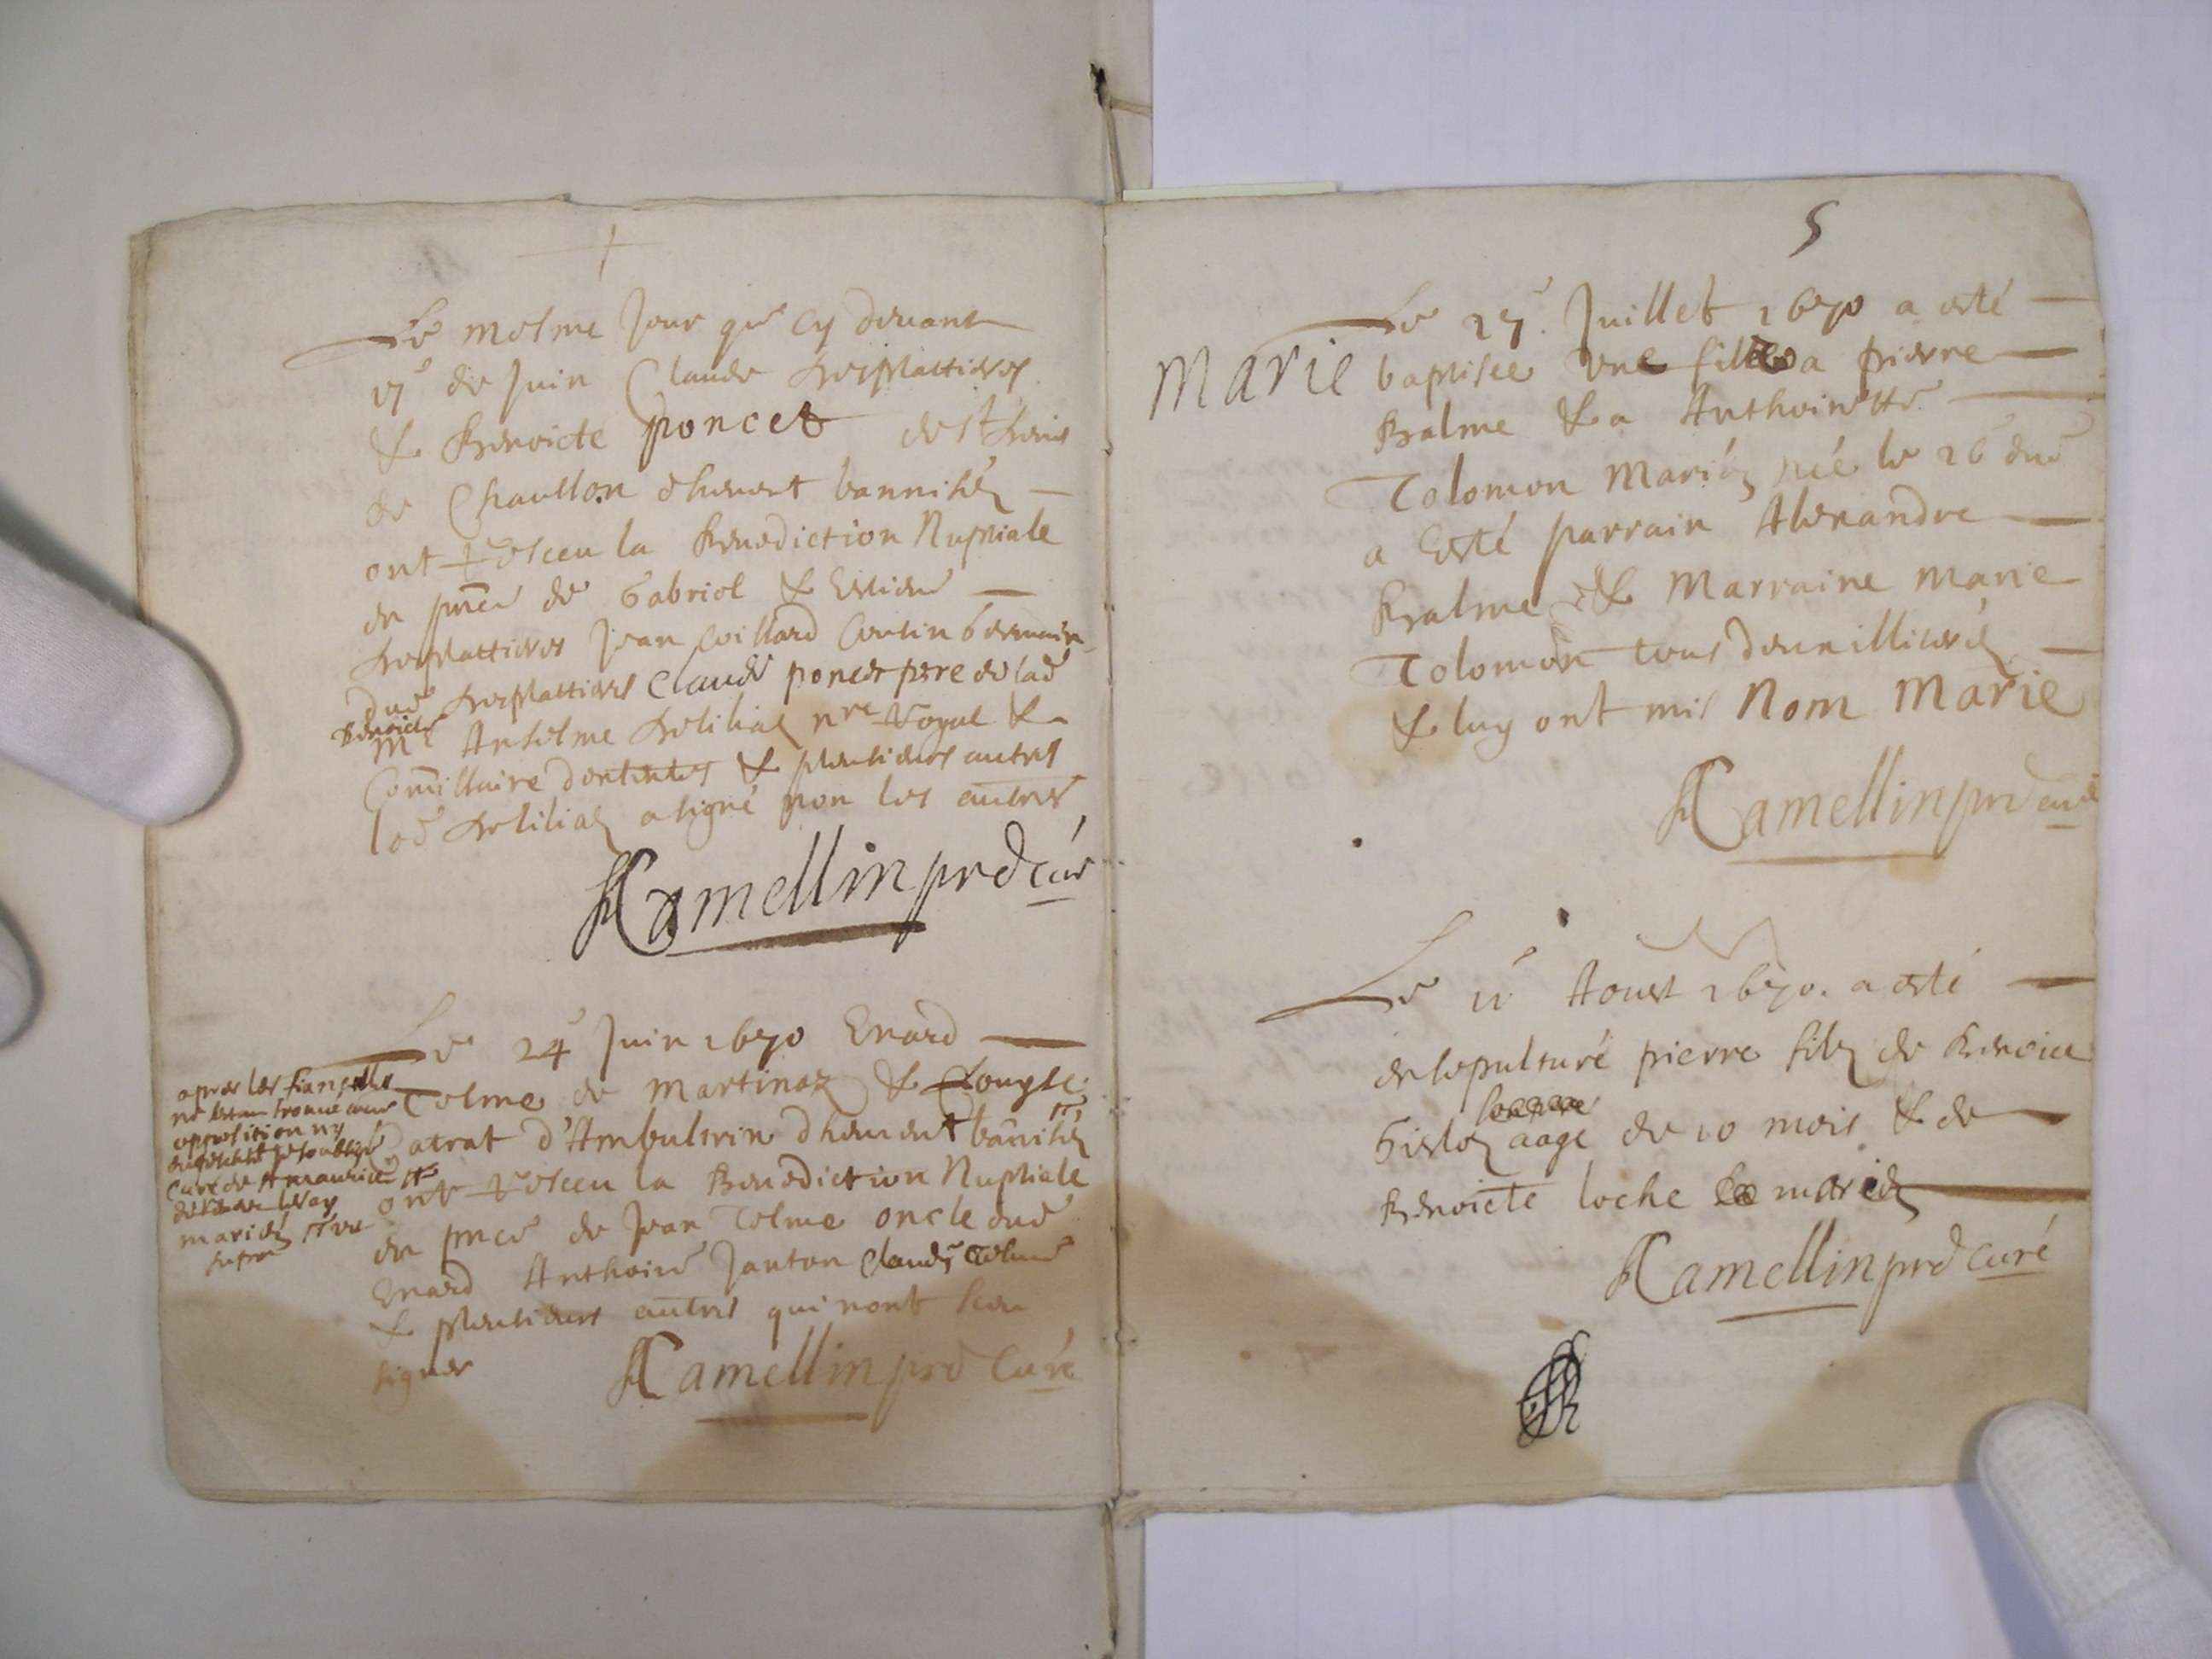 Le mesme Jour que cy devant
17e de Juin Claude Desplattieres
& Benoicte poncet de st Denis
de Chausson dhuement bannisés
ont Resceu la Benediction Nuptiale
en pnce de Gabriel & Estienne
Desplattieres Jean Coillard Cousin Germain
dud Desplattieres Claude poncet pere de lad
Benoicte
Me Anselme Delilia nre Royal &
Comissaire & plusieurs autres
led Delilia a signé non les autres
Ramellin pre Curé
Le 24e Juin 1670 Enard
Tolme de Martinaz & Louyse
patrat d'Ambutrin dhuement bannisés
ont Resceu la Benediction Nuptiale
en pnce de Jean Tolme oncle dud
Enard Anthoine Janton Claude Tolme
& plusieurs autres qui nont sceu
signer
Ramellin pre Curé
apres les fiançailles
ne sestant trouvé aucune
opposition ny
Curé de st maurice
mariés
5
Marie
Le 27e Juillet 1670 a esté
baptisée une fille a pierre
Balme & a Anthoinette
Tolomon Mariés née le 26e dud
a Esté parrain Alexandre
Balme & Marraine Marie
Tolomon tous
& luy ont mis Nom Marie
Ramellin pre curé
Le 11e Aoust 1670. a esté
ensepulturé pierre filz de Benoict
aagé de 10 mois & de
Benoicte loche mariés
Ramellin pre Curé